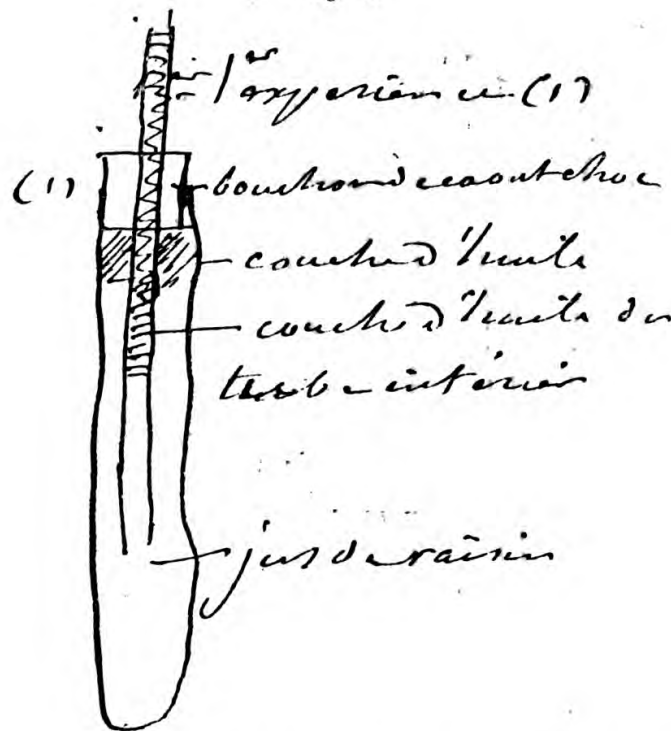 1re expérience (1)
(1)
bouchon de caoutchouc
couche d'huile
couche d'huile du
tube intérieur
jus de raisin